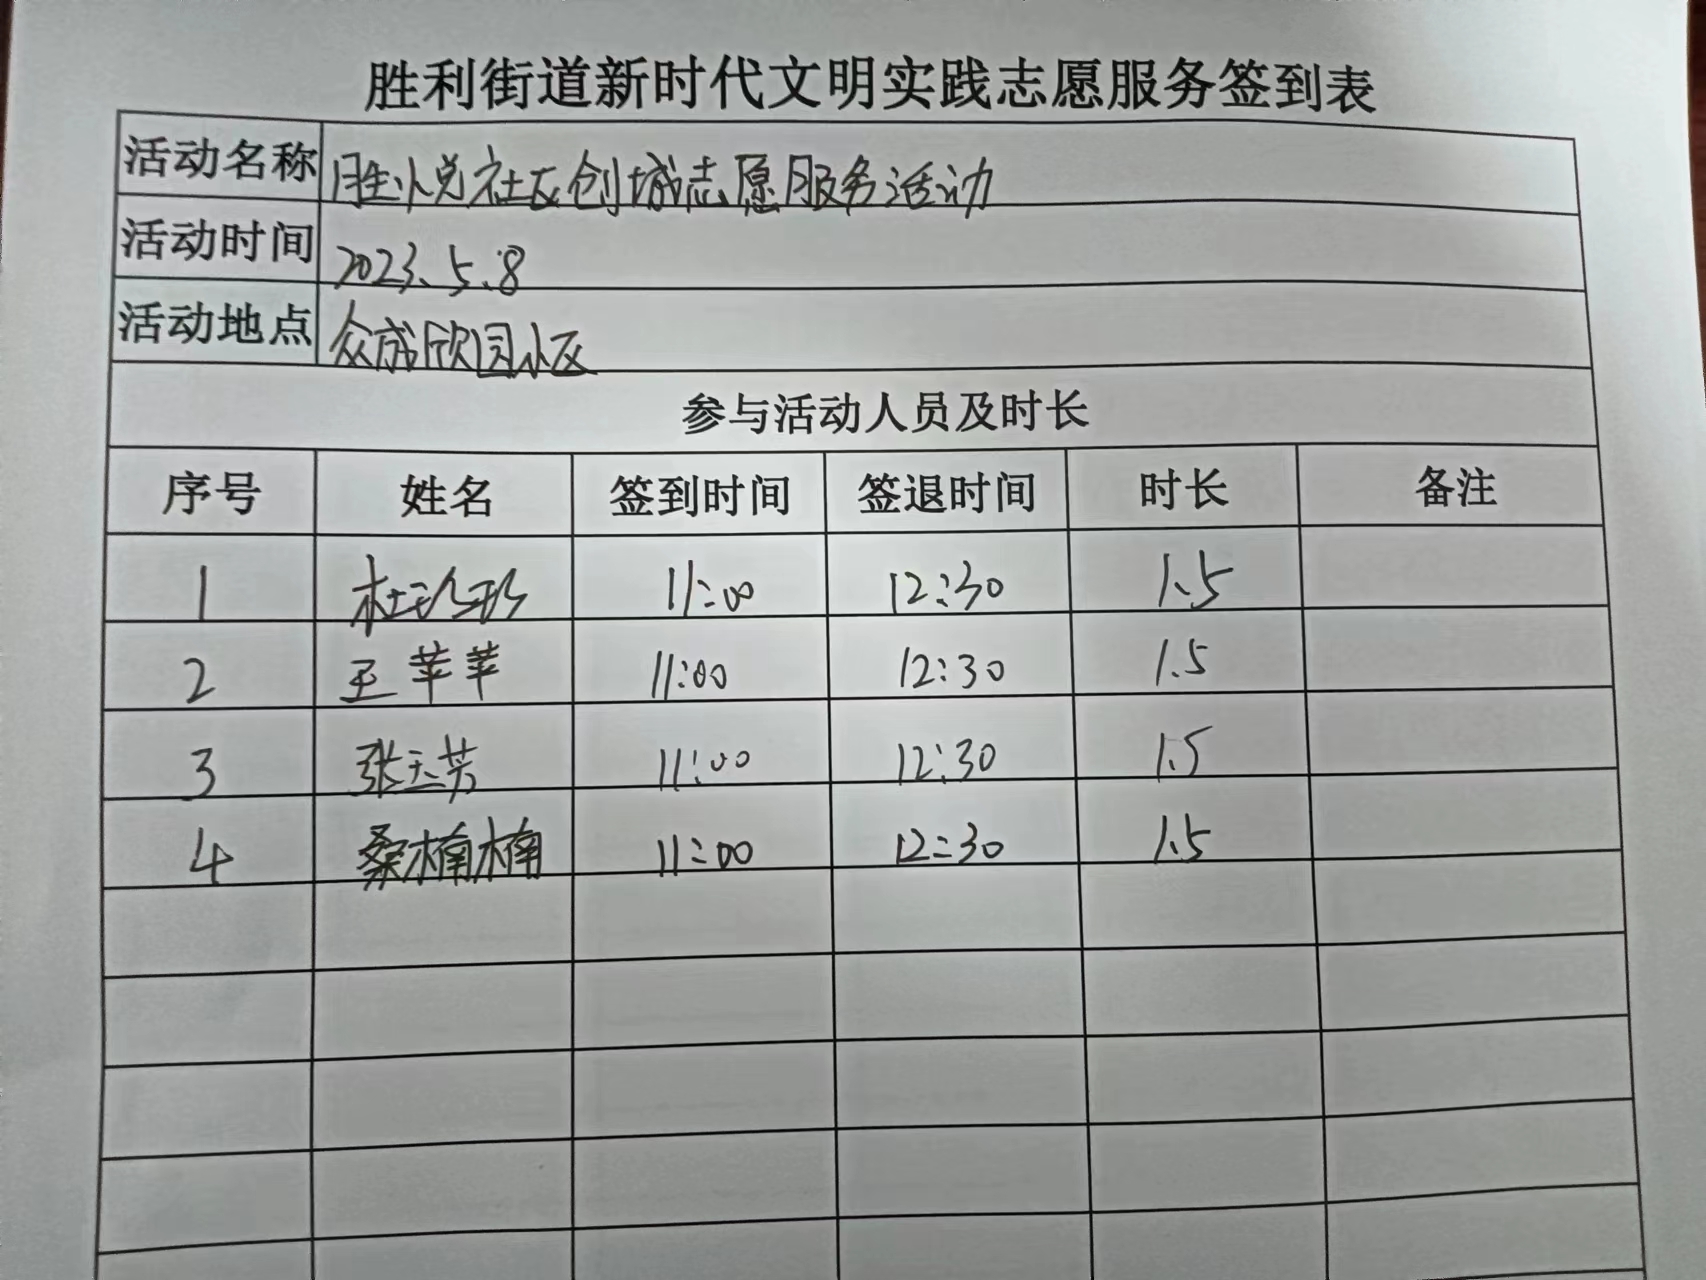 胜利街道新时代文明实践志愿服务签到表
活动名称 胜悦社区创城志愿服务活动
活动时间 2023.5.8
活动地点 众成欣园小区
参与活动人员及时长
序号 姓名 签到时间 签退时间 时长 备注
1 杜珍珍 11:00 12:30 1.5
2 王苹苹 11:00 12:30 1.5
3 张玉芳 11:00 12:30 1.5
4 桑楠楠 11:00 12:30 1.5